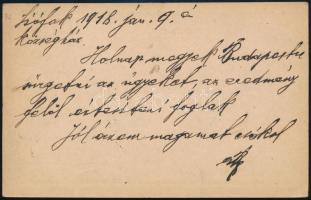 Siófok 1918. jan. 9. é
Községház
Holnap megyek Budapestre
sürgetni az ügyeket, az eredmény
felől értesíteni foglak
Jól érzem magamat csókol